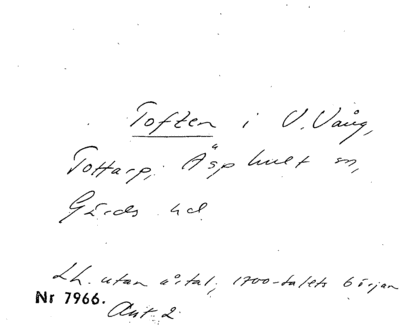 Toften i V. Vång,
Tottarp, Äsphult sn,
Gärds hd
Lh. utan årtal, 1700-talets början
Nr 7966.
Akt. 2